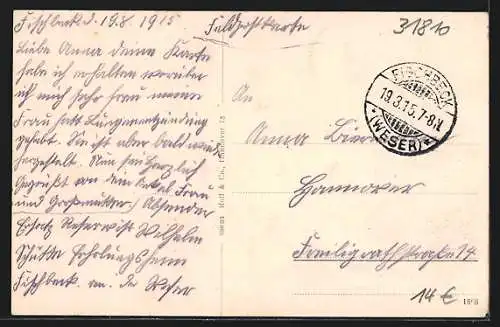 Fischbeck d. 19.3.1915
Feldpostkarte
31810
Liebe Anna deine Karte
habe ich erhalten worüber
ich mich sehr freu meine
Frau hatt Lungenentzündung
gehabt. Sie ist aber bald wieder
hergestellt. Nun sei herzlich
Gegrüßt von dein Onkel Frau
und Großmutter) Absender
Ersatz Reservist Wilhelm
Schütte Erholungsheim
Fischbeck an der Weser
FISCHBECK
19.3.15.7-8.N.
*(WESER)*
An
Anna
Hannover
Freiligrathstraße 14
& Co., Hannover
14 €